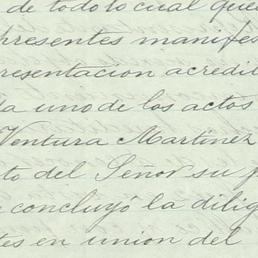 de todo lo cual que
presentes manifes
presentacion acredi
da uno de los actos
Ventura Martinez
to del Señor su p
concluyó la dilig
tes en union del